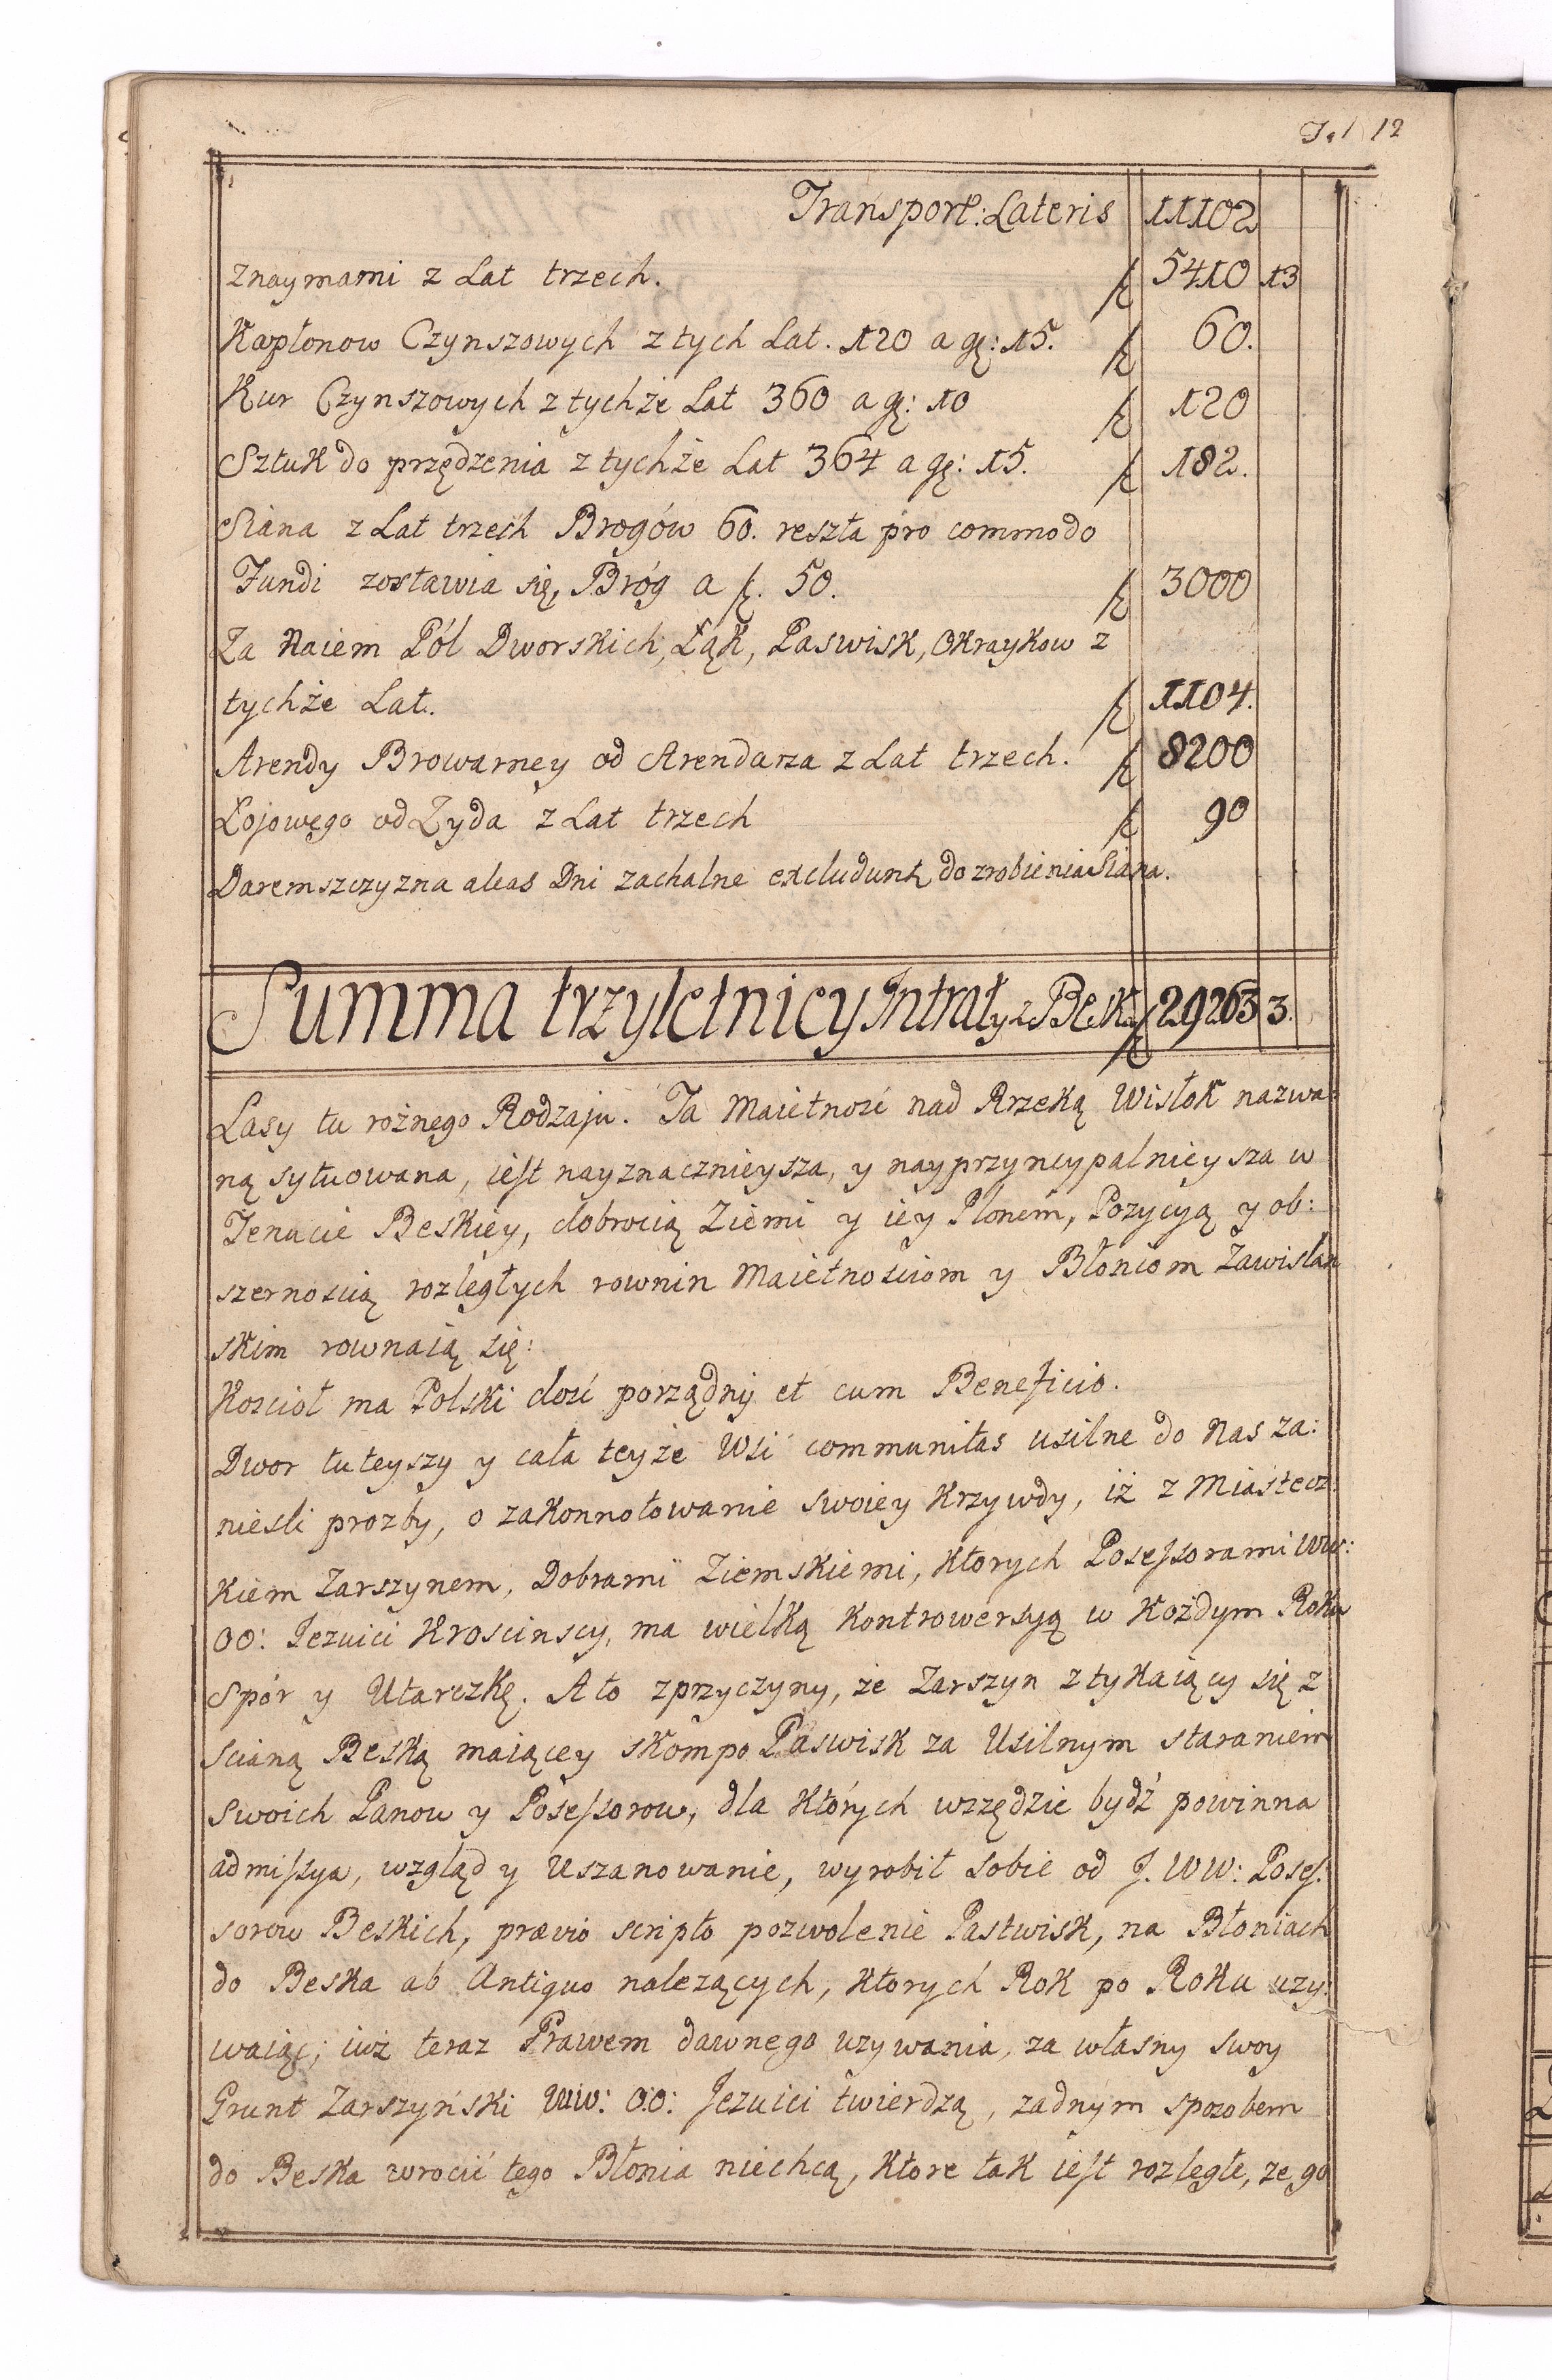 Fol 12
Transport: Lateris 11102
Znaymami z Lat trzech. f. 5410 13
Kapłonow Czynszowych z tych Lat. 120 a gr: 15. f. 60.
Kur Czynszowych z tychże Lat 360 a gr: 10 f. 120
Sztuk do przędzenia z tychże Lat 364 a gr: 15. f. 182.
Siana z Lat trzech Brogów 60. reszta pro commodo
Fundi zostawia się, Bróg a f. 50. f. 3000
Za Naiem Pól Dworskich, Łąk, Paswisk, Okraykow z
tychże Lat. f. 1104.
Arendy Browarney od Arendarza z Lat trzech. f. 8200
Łojowęgo od Zyda z Lat trzech f. 90
Daremszczyzna alias Dni zachalne excludunt do zrobienia Siana.
Summa trzyletnicy Intraty z Beska f. 29263 3.
Lasy tu rożnego Rodzaju. Ta Maietność nad Rzeką Wisłok nazwa=
ną sytuowana, iest nayznacznieysza, y nayprzyncypalnieysza w
Tenucie Beskiey, dobrocią Ziemi y iey Plonem, Pozycyą y ob:
szernoscią rozległych rownin Maietnościom y Błoniom Zawislan
skim rownaią się:
Kosciół ma Polski dość porządny et cum Beneficio.
Dwor tuteyszy y cała teyże Wsi communitas usilne do Nas za:
niesli prozby, o zakonnotowanie swoiey Krzywdy, iż z Miastecz:
kiem Zarszynem, Dobrami Ziemskiemi, ktorych Posessorami WW:
OO: Jezuici Krościnscy, ma wielką Kontrowersyą w Każdym Roku
Spór y Utarczkę. A to z przyczyny, że Zarszyn ztykaiący się z
Scianą Beską maiącey skompo Paswisk za Usilnym staraniem
Swoich Panow y Posessorow, dla Których wszędzie bydź powinna
admissya, wzgląd y uszanowanie, wyrobił sobie od J. WW: Poses:
sorow Beskich, prævio scripto pozwolenie Pastwisk, na Błoniach
do Beska ab Antiquo nalezących, ktorych Rok po Roku uzy:
waiąc; iuż teraz Prawem dawnego uzywania, za własny swoy
Grunt Zarszyński WW: OO: Jezuici twierdzą, zadnym sposobem
do Beska wrocić tego Błonia niechcą, ktore tak iest rozległe, ze go